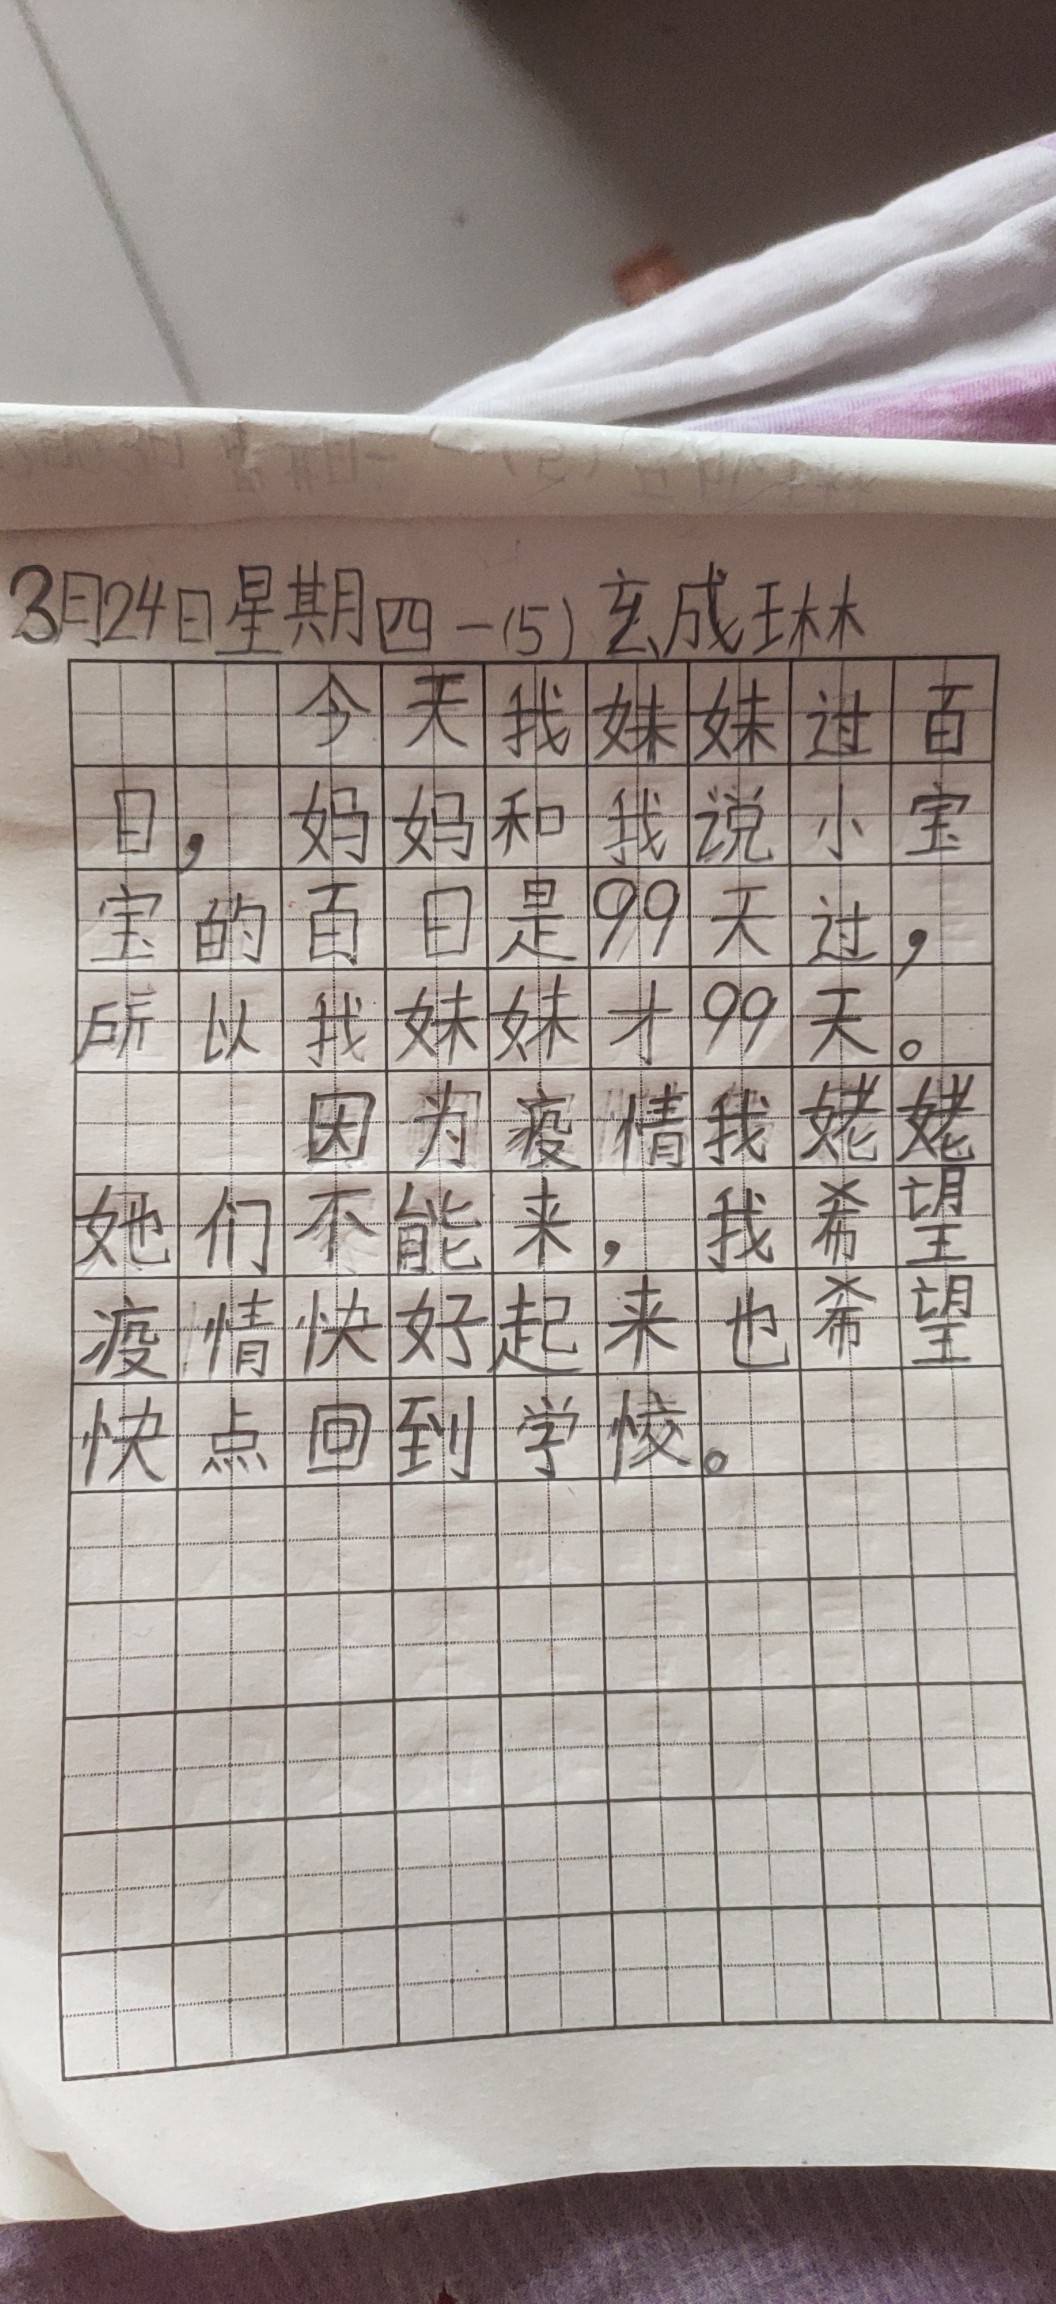 3月24日星期四一(5)玄成琳
今天我妹妹过百
日，妈妈和我说小宝
宝的百日是99天过，
所以我妹妹才99天。
因为疫情我姥姥
她们不能来，我希望
疫情快好起来也希望
快点回到学校。